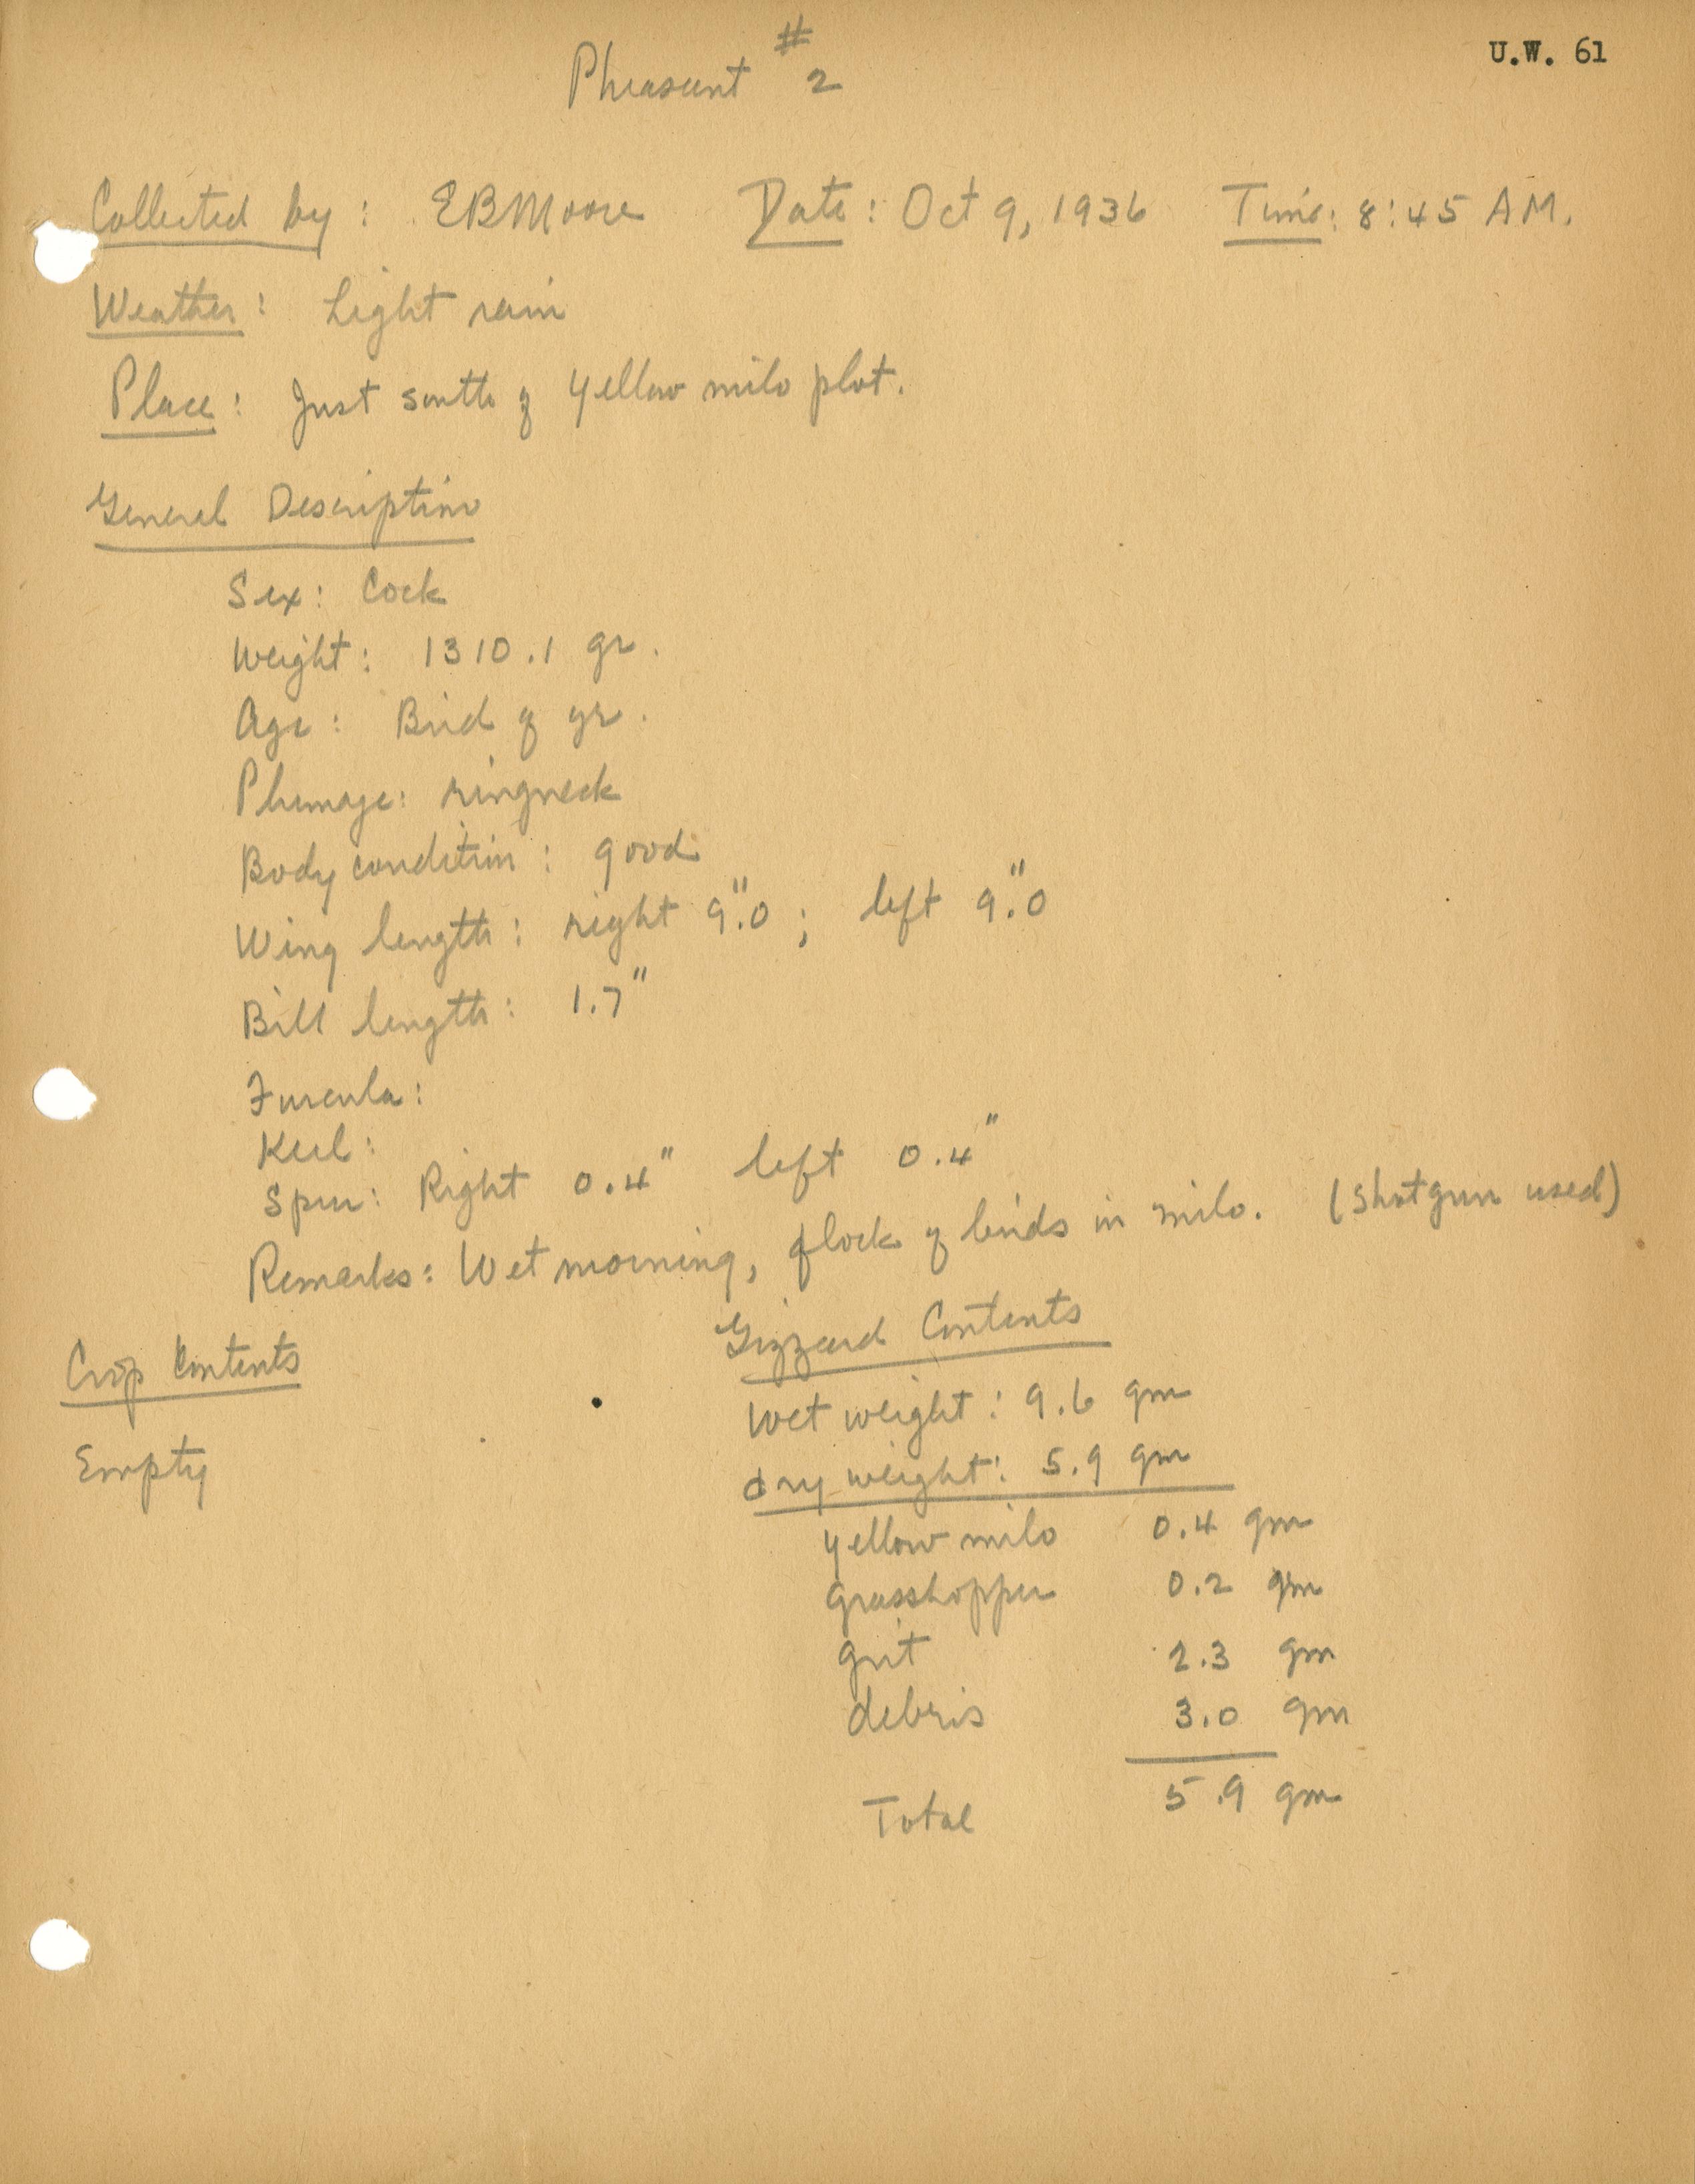 U.W. 61
Pheasant # 2
Collected by: EBMoore Date: Oct 9, 1936 Time: 8:45 AM.
Weather: Light rain
Place: Just south of yellow milo plot.
General Description
Sex: Cock
Weight: 1310.1 gr.
Age: Bird of yr.
Plumage: ringneck
Body condition: good
Wing length: right 9".0; left 9".0
Bill length: 1.7"
Furcula:
Keel:
Spur: Right 0.4" left 0.4"
Remarks: Wet morning, flock of birds in milo. (Shotgun used)
Crop Contents
Empty
Gizzard Contents
Wet weight: 9.6 gm
dry weight: 5.9 gm
yellow milo 0.4 gm
grasshopper 0.2 gm
grit 2.3 gm
debris 3.0 gm
Total 5.9 gm